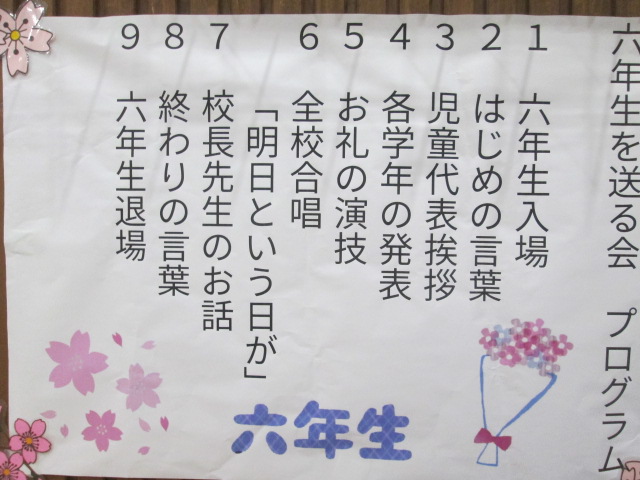 六年生を送る会　プログラム
1　六年生入場
2　はじめの言葉
3　児童代表挨拶
4　各学年の発表
5　お礼の演技
6　全校合唱
「明日という日が」
7　校長先生のお話
8　終わりの言葉
9　六年生退場
六年生